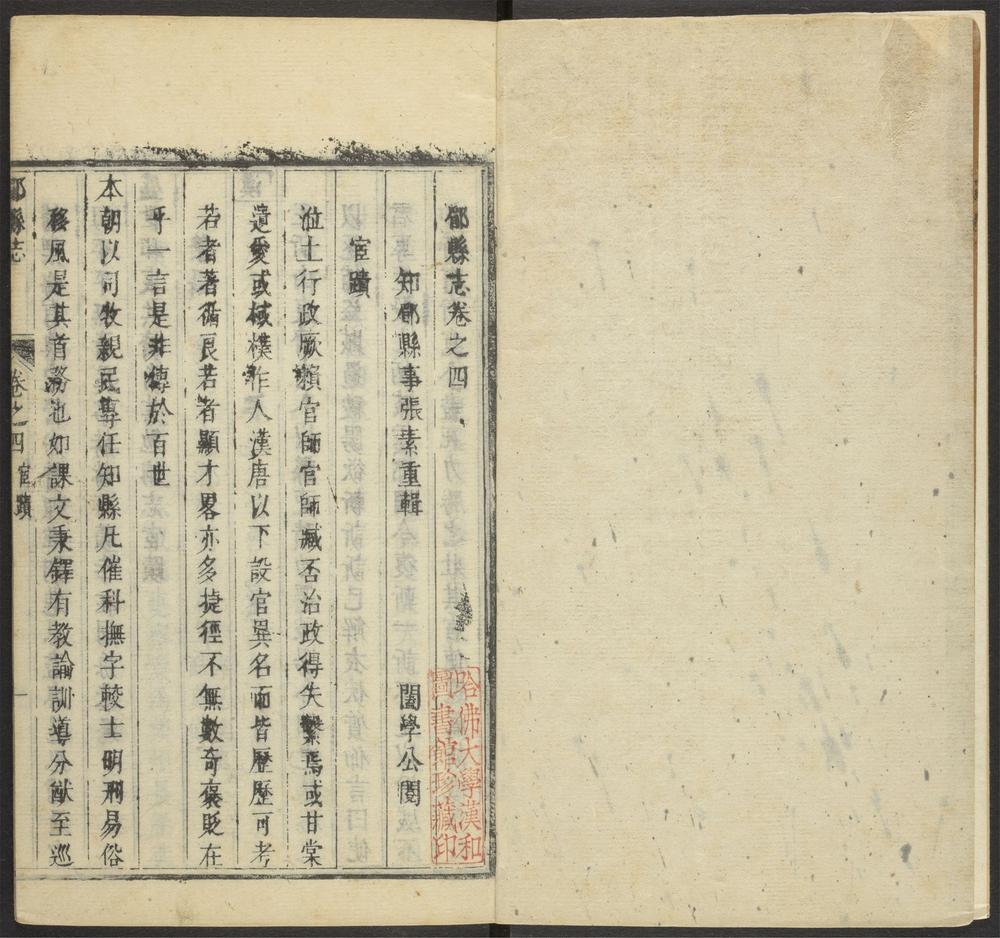 郿縣志卷之四
知郿縣事張素重輯 闔學公閱
宦蹟
涖土行政厥賴官師官師臧否治政得失繫焉或甘棠
遺愛或棫樸作人漢唐以下設官異名而皆歷歷可考
若者著循良若者顯才畧亦多捷徑不無數奇褒貶在
乎一言是非傳於百世
本朝以司牧親民專任知縣凡催科撫字較士明刑易俗
移風是其首務也如課文秉鐸有教諭訓導分猷至巡
縣志
卷之四 宦蹟
一
哈佛大學漢和
圖書館珍藏印